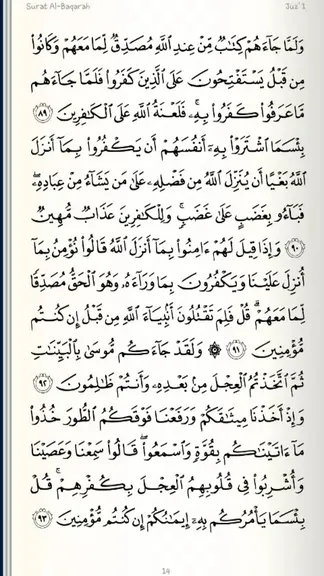 Surat Al-Baqarah Juz' 1
وَلَمَّا جَآءَهُمْ كِتَٰبٌ مِّنْ عِندِ ٱللَّهِ مُصَدِّقٌ لِّمَا مَعَهُمْ وَكَانُوا۟
مِن قَبْلُ يَسْتَفْتِحُونَ عَلَى ٱلَّذِينَ كَفَرُوا۟ فَلَمَّا جَآءَهُم
مَّا عَرَفُوا۟ كَفَرُوا۟ بِهِۦ ۚ فَلَعْنَةُ ٱللَّهِ عَلَى ٱلْكَٰفِرِينَ ٨٩
بِئْسَمَا ٱشْتَرَوْا۟ بِهِۦٓ أَنفُسَهُمْ أَن يَكْفُرُوا۟ بِمَآ أَنزَلَ
ٱللَّهُ بَغْيًا أَن يُنَزِّلَ ٱللَّهُ مِن فَضْلِهِۦ عَلَىٰ مَن يَشَآءُ مِنْ عِبَادِهِۦ ۖ
فَبَآءُو بِغَضَبٍ عَلَىٰ غَضَبٍ ۚ وَلِلْكَٰفِرِينَ عَذَابٌ مُّهِينٌ
٩٠ وَإِذَا قِيلَ لَهُمْ ءَامِنُوا۟ بِمَآ أَنزَلَ ٱللَّهُ قَالُوا۟ نُؤْمِنُ بِمَآ
أُنزِلَ عَلَيْنَا وَيَكْفُرُونَ بِمَا وَرَآءَهُۥ وَهُوَ ٱلْحَقُّ مُصَدِّقًا
لِّمَا مَعَهُمْ ۗ قُلْ فَلِمَ تَقْتُلُونَ أَنۢبِيَآءَ ٱللَّهِ مِن قَبْلُ إِن كُنتُم
مُّؤْمِنِينَ ٩١ ۞ وَلَقَدْ جَآءَكُم مُّوسَىٰ بِٱلْبَيِّنَٰتِ
ثُمَّ ٱتَّخَذْتُمُ ٱلْعِجْلَ مِنۢ بَعْدِهِۦ وَأَنتُمْ ظَٰلِمُونَ ٩٢
وَإِذْ أَخَذْنَا مِيثَٰقَكُمْ وَرَفَعْنَا فَوْقَكُمُ ٱلطُّورَ خُذُوا۟
مَآ ءَاتَيْنَٰكُم بِقُوَّةٍ وَٱسْمَعُوا۟ ۖ قَالُوا۟ سَمِعْنَا وَعَصَيْنَا
وَأُشْرِبُوا۟ فِى قُلُوبِهِمُ ٱلْعِجْلَ بِكُفْرِهِمْ ۚ قُلْ
بِئْسَمَا يَأْمُرُكُم بِهِۦٓ إِيمَٰنُكُمْ إِن كُنتُم مُّؤْمِنِينَ ٩٣
14